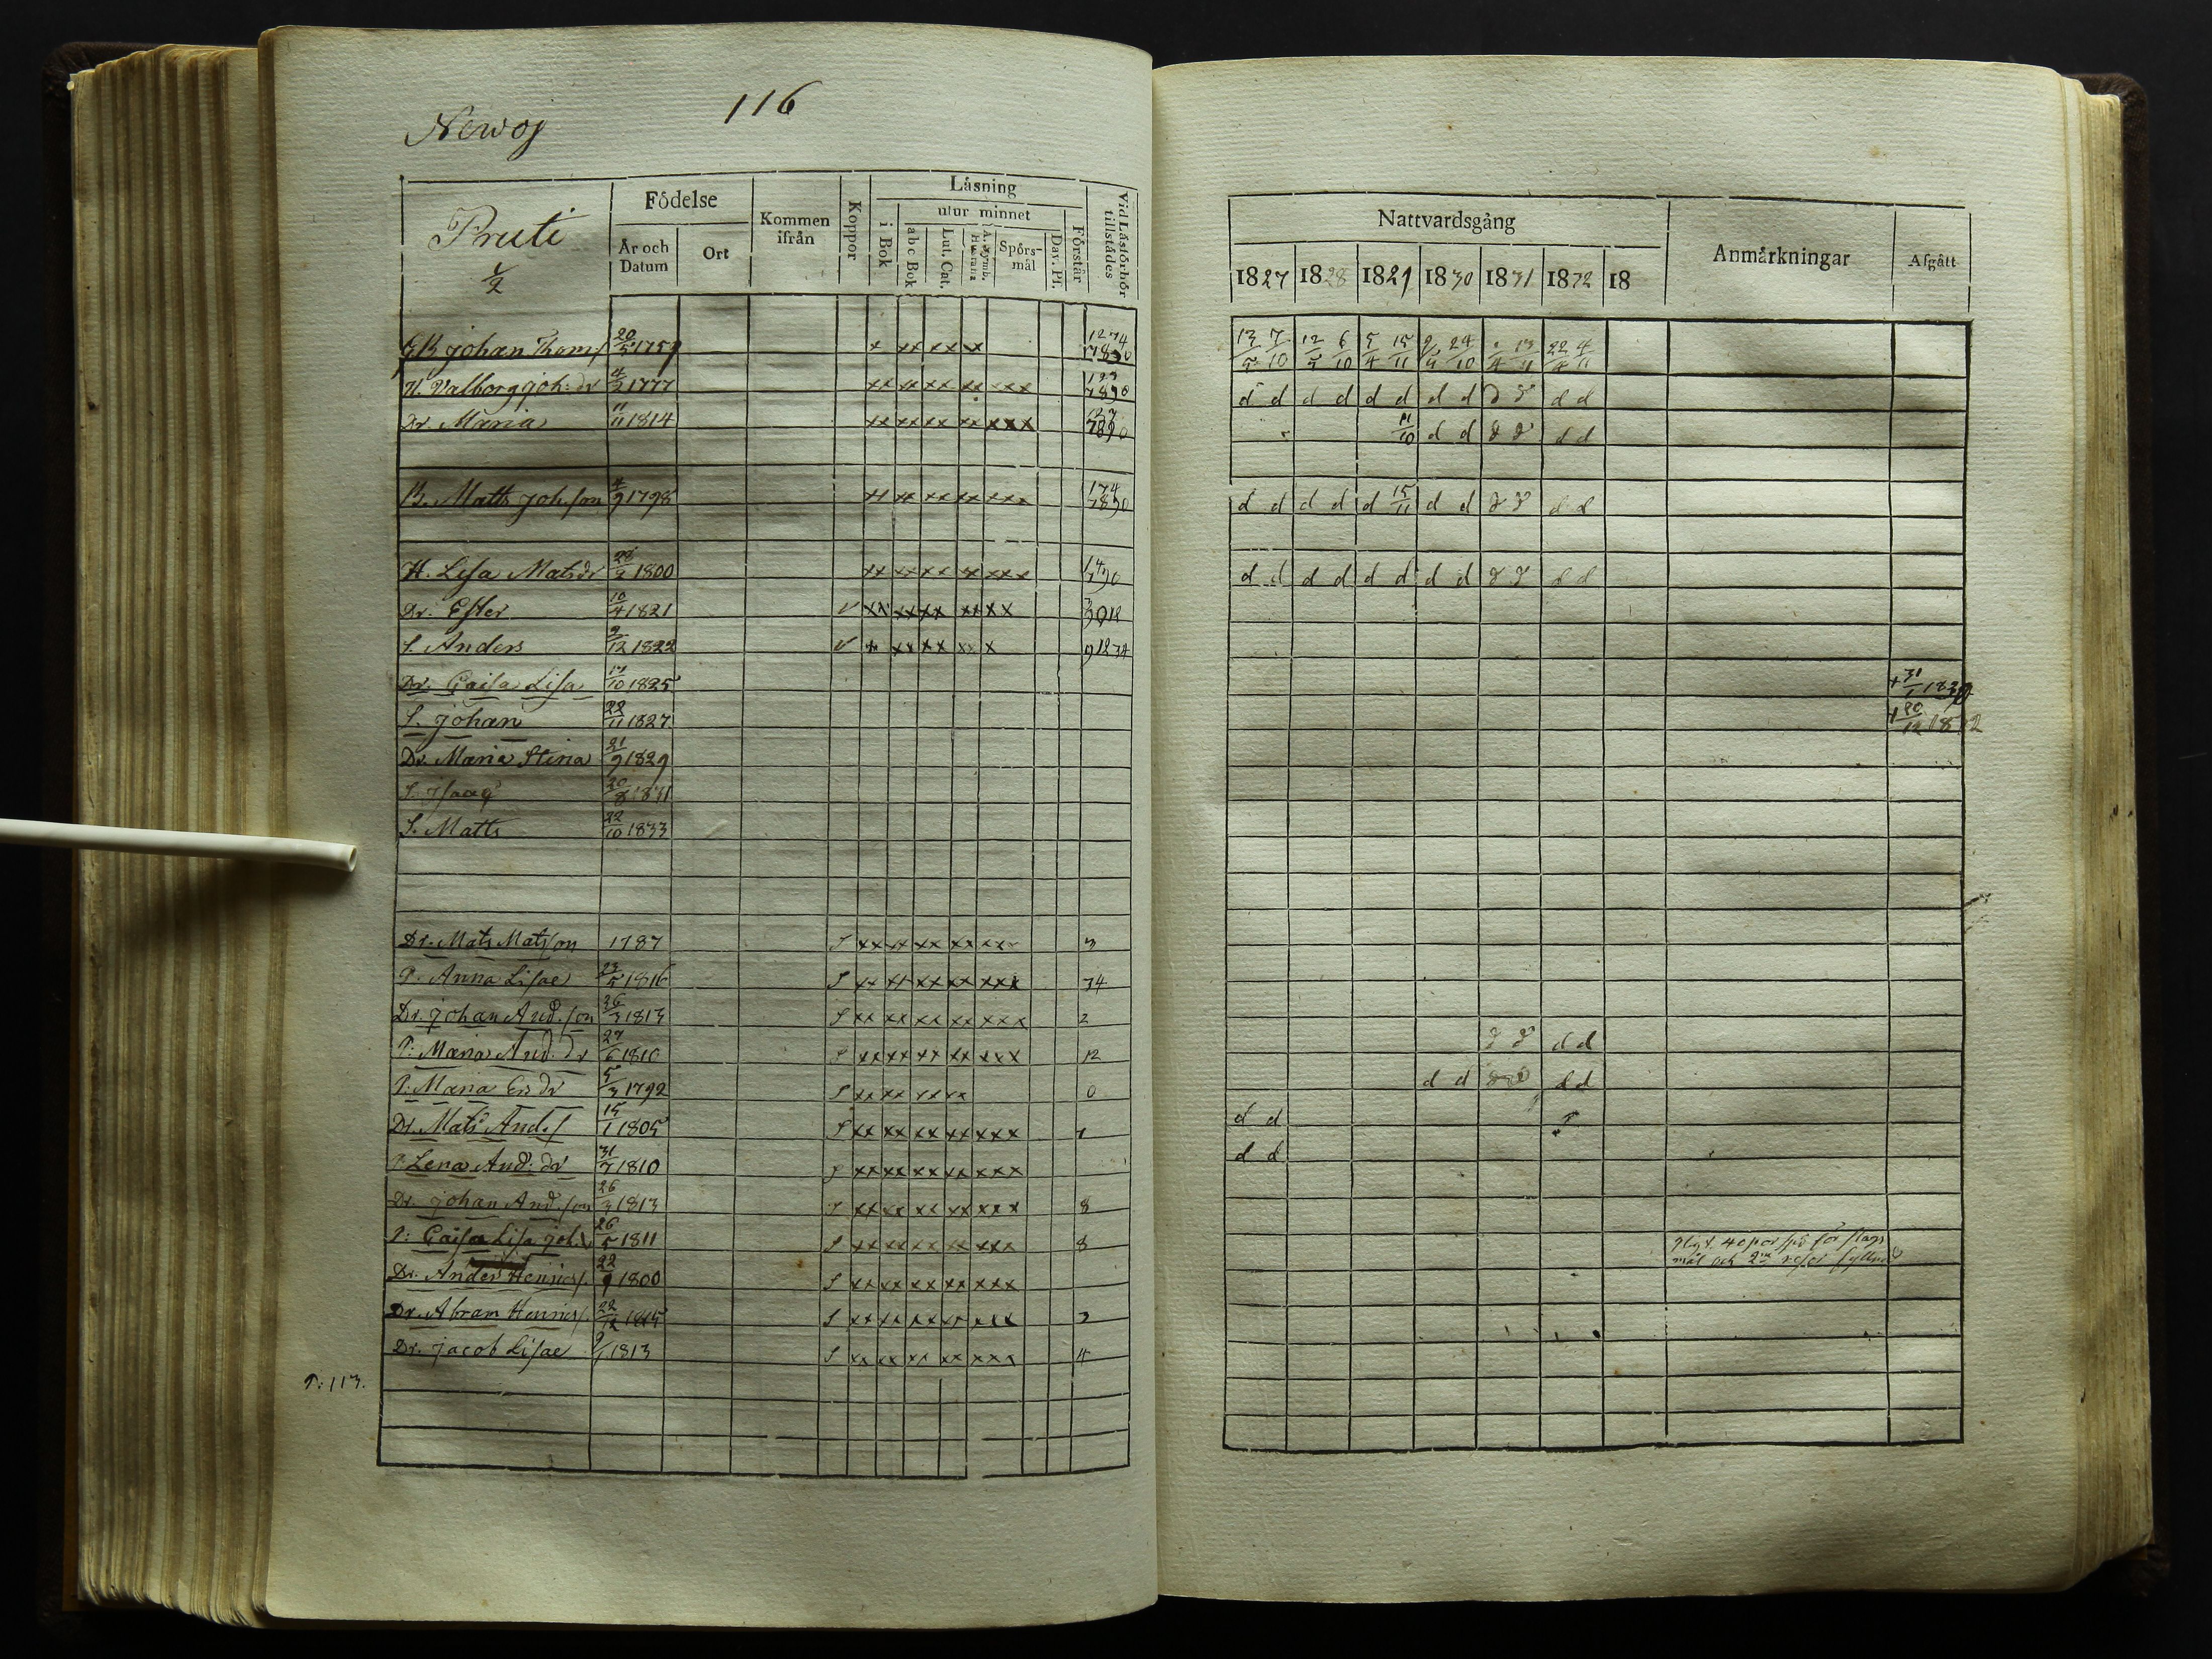 116
Newoj
Pruti
1/2
Födelse
År och Datum
Ort
Kommen ifrån
Koppor
Låsning
utur minnet
i Bok
a b c Bok
Lut. Cat.
A. Symb.
Spörsmål
Dav. Ps.
Förstår
Vid Läsförhör tillstådes
Johan Thoms 20/5 1759 x xx xx x
H. Valborg Joh: dr 4/2 1777 xx xx xx xx xxx
Dr. Maria 11/11 1814 xx xx xx xx xxx
B. Matts Joh.son 4/9 1798 xx xx xx xx xxx
H. Lisa Matsdr 22/2 1800 xx xx xx xx xxx
Dr. Ester 10/4 1821 v xx xx xx xx xx
S. Anders 2/12 1822 v x xx xx xx x
Dr. Caisa Lisa 17/10 1825
S. Johan 22/11 1827
Dr. Maria Stina 21/9 1829
S. Isaag 20/8 1831
S. Matts 22/10 1833
Dr. Mats Matsson 1787 S xx xx xx xx xxx 3
P. Anna Lisae 23/5 1816 S xx xx xx xx xxx 34
Dr. Johan And.son 26/3 1813 S xx xx xx xx xxx 2
P: Maria And. dr 27/6 1810 S xx xx xx xx xxx 12
P: Maria Er. dr 5/3 1792 S xx xx xx xx 0
Dr. Mats And.s 15/1 1805 S xx xx xx xx xxx 1
P Lena And: dr 31/7 1810 S xx xx xx xx xxx
Dr. Johan And.son 26/3 1813 S xx xx xx xx xxx 8
P: Caisa Lisa Joh. 26/5 1811 S xx xx xx xx xxx 8
Dr. Anders Henrics. 22/9 1800 S xx xx xx xx xxx
Dr. Abram Henrics. 22/12 1815 S xx xx xx xx xxx 3
Dr. Jacob Lisae 9/1 1813 S xx xx xx xx xxx 4
P: 113.
Nattvardsgång
Anmärkningar
Afgått
1827 1828 1829 1830 1831 1832 18
13/5 7/10 12/5 6/10 5/4 15/11 24/10 13/11 22/4 4/11
d d d d d d d d d d d d
11/10 d d d d d d
d d d d d 15/11 d d d d d d
d d d d d d d d d d d d
+ 31/1 1830
+ 20/12 1832
d d d d
d d d d
d d
d d